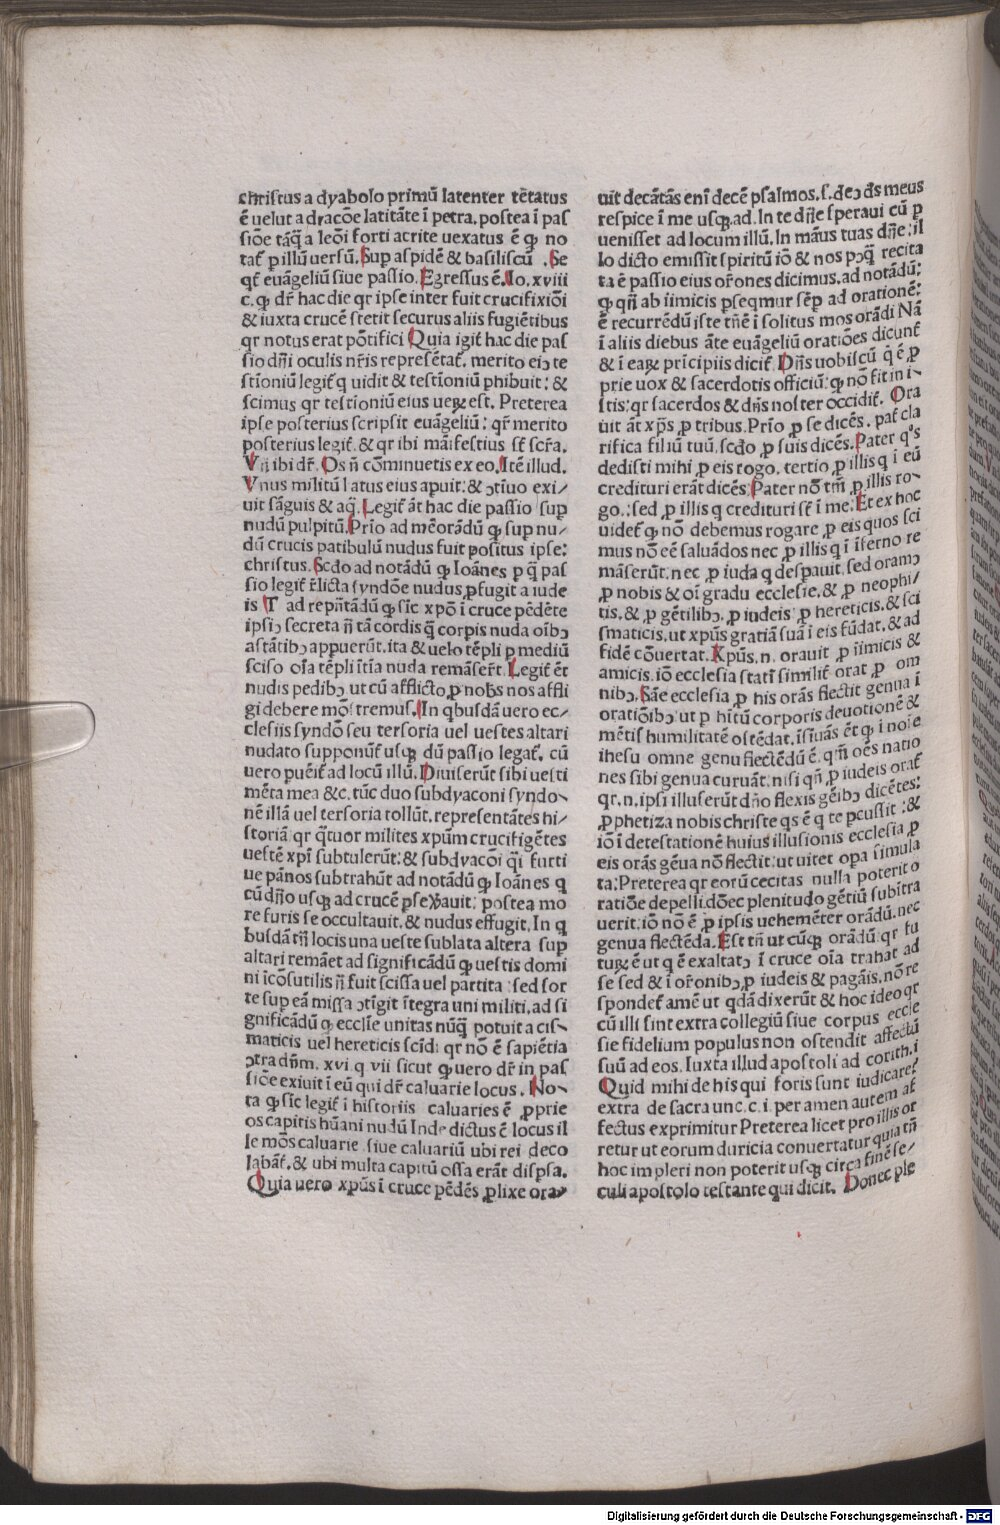 chriſtus a dyabolo primū latenter tētatus
ē uelut a dracōe latitāte ī petra, poſtea ī paſ
ſiōe tāq̄ a leōi forti acrite uexatus ē ꝙ no
tat᷒ ꝑ illū uerſū. Sup aſpidē & baſiliſcū . Se
qt᷒ euāgeliū ſiue paſſio. Egreſſus ē. Io. xviii
c. ꝙ dr̄ hac die qr ipſe inter fuit crucifixiōi
& iuxta crucē ſtetit ſecurus aliis fugiētibus
qr notus erat pōtifici Quia igit᷒ hac die paſ
ſio dn̄i oculis nr̄is repreſētat᷒. merito eiꝰ te
ſtīoniū legit᷒ q uidit & teſtīoniū phibuit: &
ſcimus qr teſtīoniū eius ueꝝ eſt. Preterea
ipſe poſterius ſcripſit euāgeliū: qr̄ merito
poſterius legit᷒. & qr ibi māifeſtius ſt᷒ ſcr̄a.
Vn̄ ibi dr̄. Os n̄ cōminuetis ex eo. Itē illud.
Vnus militū latus eius apuit: & ↄtīuo exi⸗
uit ſāguis & aq̄. Legit᷒ āt hac die paſſio ſup
nudū pulpitū. Prīo ad mēorādū ꝙ ſup nu⸗
dū crucis patibulū nudus fuit poſitus ipſe:
chriſtus. Scdo ad notādū ꝙ Ioānes p q̄ paſ
ſio legit᷒ r̄licta ſyndōe nudus ꝓfugit a iude
is T ad repn̄tādū ꝙ ſic̄ xpō ī cruce pēdēte
ipſiꝰ ſecreta n̄ tā cordis q̄ corpis nuda oībꝰ
aſtātibꝰ appuerūt. ita & uelo tēpli p mediū
ſciſo oīa tēpli ītīa nuda remāſer̄t. Legit᷒ ēt
nudis pedibꝰ ut cū afflicto ꝓ nobis nos affli
gi debere mōſtremus. In qbuſdā uero ec⸗
cleſiis ſyndō ſeu terſoria uel ueſtes altari
nudato ſupponūt᷒ uſqꝫ dū paſſio legat᷒. cū
uero puēit᷒ ad locū illū. Diuiſerūt ſibi ueſti
mēta mea &c. tūc duo ſubdyaconi ſyndo⸗
nē illā uel terſoria tollūt. repreſentātes hi⸗
ſtoriā qr q̄tuor milites xpūm crucifigētes
ueſtē xpī ſubtulerūt: & ſubdyacōi q̄i furti
ue pānos ſubtrahūt ad notādū ꝙ Ioānes q
cū dn̄o uſqꝫ ad crucē pſeuauit: poſtea mo
re furis ſe occultauit. & nudus effugit. In q
buſdā tn̄ locis una ueſte ſublata altera ſup
altari remāet ad ſignificādū ꝙ ueſtis domi
ni īcōſutilis n̄ fuit ſciſſa uel partita : ſed ſor
te ſup eā miſſa ↄtīgit ītegra uni militi. ad ſi
gnificādū ꝙ eccliē unitas nūq̄ potuit a ciſ⸗
maticis uel hereticis ſcīdi: qr nō ē ſapiētia
ↄtra dn̄m. xvi. q vii ſicut ꝙ uero dr̄ in paſ
ſiōe exiuit ī eū qui dr̄ caluarie locus. No⸗
ta ꝙ ſic̄ legit᷒ ī hiſtoriis caluaries ē ꝓprie
os capitis hūani nudū Inde dictus ē locus il
le mōs caluarie. ſiue caluariū ubi rei deco
labāt᷒. & ubi multa capitū oſſa erāt diſpſa.
Quia uero xpūs ī cruce pēdēs ꝓlixe ora⸗
uit decātās enī decē pſalmos. ſ. deꝰ ds̄ meus
reſpice ī me uſqꝫ. ad. In te dn̄e ſperaui cū ꝑ
ueniſſet ad locum illū. In māus tuas dn̄e: il
lo dicto emiſſit ſpiritū iō & nos pꝰq̄ recita
ta ē paſſio eius or̄ones dicimus. ad notādū:
ꝙ qn̄ ab iimicis pſeqmur ſēp ad orationē:
ē recurrēdū iſte tn̄ē ī ſolitus mos orādi Nā
ī aliis diebus āte euāgeliū oratiōes dicunt᷒
& ī eaꝝ prīcipiis dicit᷒. Dn̄s uobiſcū q̄ ē ꝓ
prie uox & ſacerdotis officiū: ꝙ nō fit in i⸗
ſtis: qr ſacerdos & dn̄s noſter occidit᷒. Ora
uit āt xp̄s ꝓ tribus. Prīo ꝓ ſe dicēs. pat᷒ cla
rifica filiū tuū. ſcdo ꝓ ſuis dicēs. Pater qͦs
dediſti mihi ꝓ eis rogo. tertio ꝓ illis q ī eū
credituri erāt dicēs: Pater nō tm̄ ꝓ illis ro⸗
go.: ſed ꝓ illis q credituri ſt᷒ ī me: Et ex hoc
uidet᷒ ꝙ nō debemus rogare ꝓ eis quos ſci
mus nō eē ſaluādos nec ꝓ illis q ī īferno re
māſerūt. nec ꝓ iuda q deſpauit. ſed oramꝰ
ꝓ nobis & oī gradu eccleſie. & ꝓ neophi⸗
tis. & ꝓ gētilibꝰ. ꝓ iudeis ꝓ hereticis. & ſci
ſmaticis. ut xpūs gratiā ſuā ī eis fūdat. & ad
fidē cōuertat. Xpūs. n. orauit ꝓ iimicis &
amicis. iō eccleſia ſtatī ſimilit᷒ orat ꝓ om
nibꝰ. Sāe eccleſia ꝓ his orās flectit genua ī
oratiōibꝰ ut p hītū corporis deuotionē &
mētis humilitatē oſtēdat. īſinuās ēt ꝙ ī noīe
iheſu omne genu flectēdū ē. qm̄ oēs natio
nes ſibi genua curuāt. niſi qn̄ ꝓ iudeis orat᷒
qr. n. ipſi illuſerūt dn̄o flexis gēibꝰ dicētes:
ꝓphetiza nobis chriſte qs ē q te pcuſſit : &
iō ī deteſtationē huius illuſionis eccleſia ꝓ
eis orās gēua nō flectit: ut uitet opa ſimula
ta: Preterea qr eorū cecitas nulla poterit o
ratiōe depelli. dōec plenitudo gētiū ſubītra
uerit. iō nō ē ꝓ ipſis uehemēter orādū. nec
genua flectēda. Eſt tn̄ ut cūqꝫ orādū: qr fu
tuꝝ ē ut q ē exaltatꝰ ī cruce oīa trahat ad
ſe ſed & ī or̄onibꝰ ꝓ iudeis & pagāis. nō re
ſpondet᷒ amē ut qdā dixerūt & hoc ideo qr
cū illi ſint extra collegiū ſiue corpus eccle
ſie fidelium populus non oſtendit affectū
ſuū ad eos. Iuxta illud apoſtoli ad corīth. i
Quid mihi de his qui foris ſunt iudicare?
extra de ſacra unc. c. i. per amen autem af
fectus exprimitur Preterea licet pro illis or
retur ut eorum duricia conuertatur quia tn̄
hoc impleri non poterit uſqꝫ circa finē ſe⸗
culi apoſtolo teſtante qui dicit. Donec ple
Digitalisierung gefördert durch die Deutsche Forschungsgemeinschaft - DFG